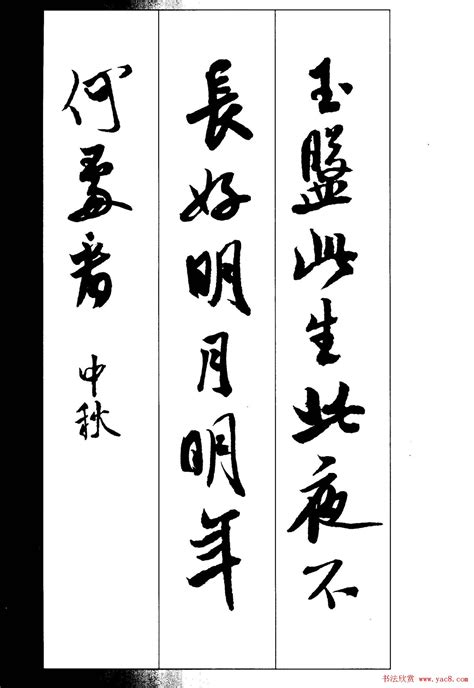 玉盤此生此夜不
長好明月明年
何處看
中秋
书法欣赏 www.yac8.com